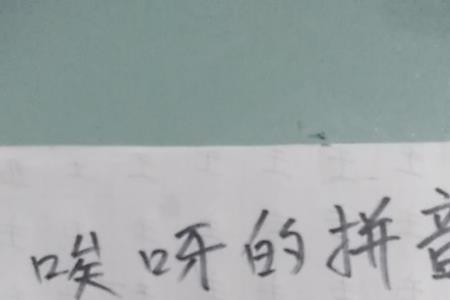 唉呀的拼音